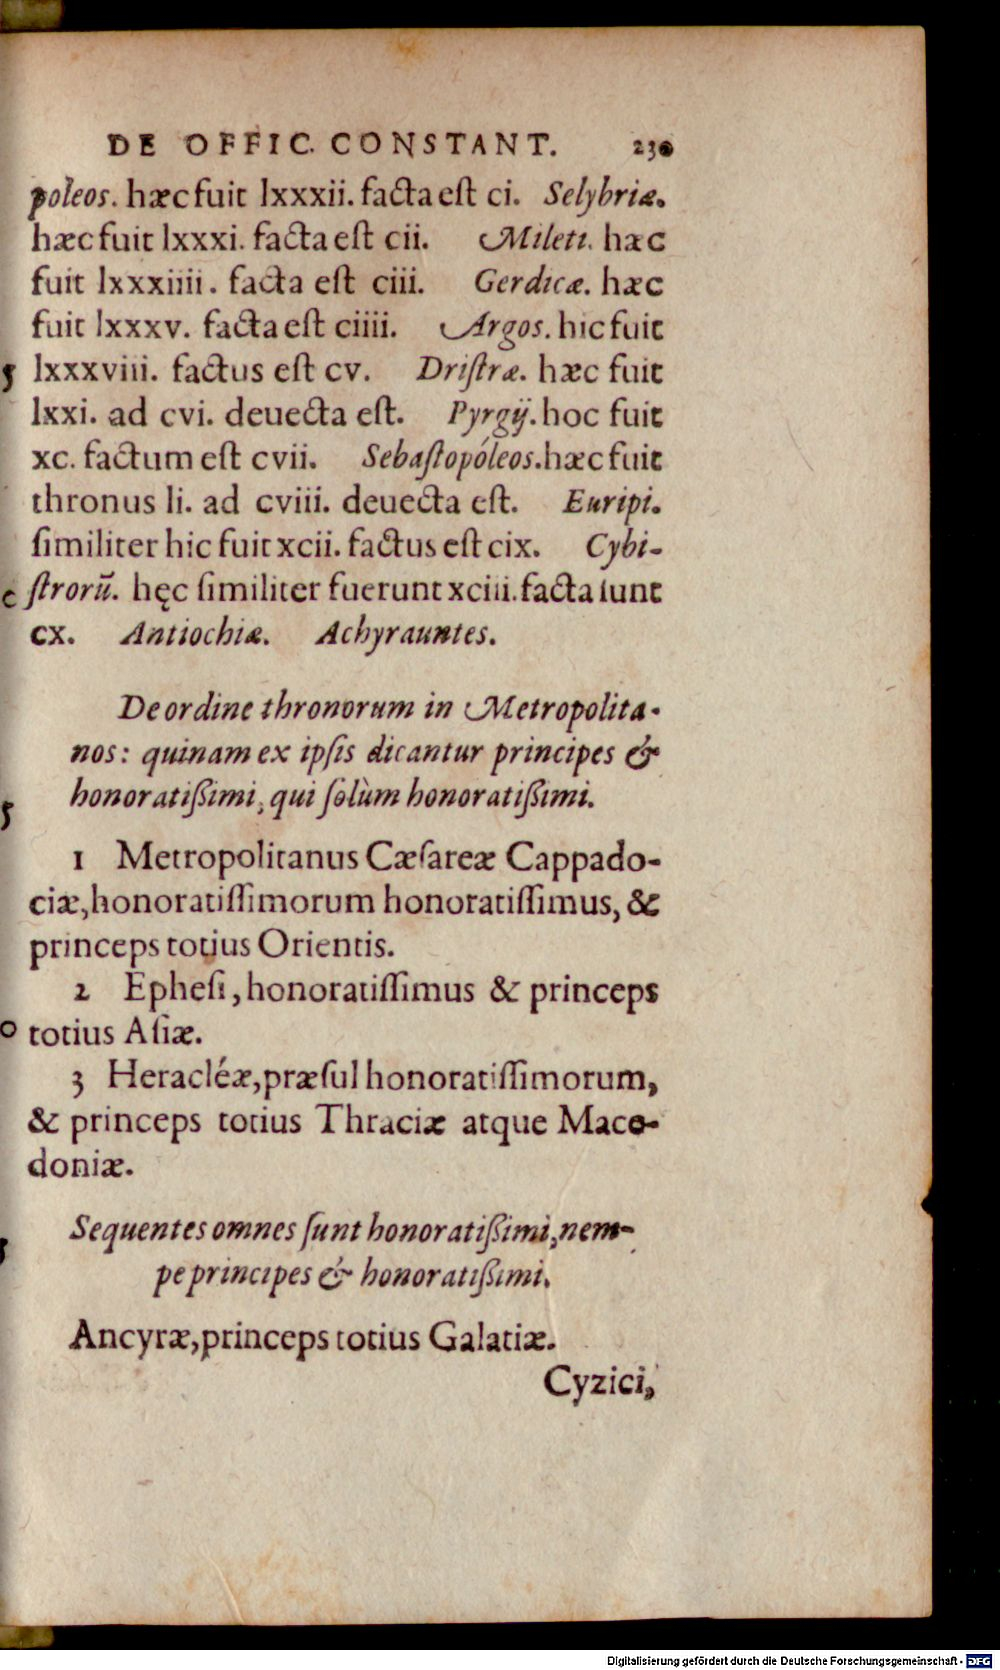 DE OFFIC. CONSTANT.
poleos. hæc fuit lxxxii. facta eſt ci. Selybriæ.
hæc fuit lxxxi. facta eſt cii. Mileti. hæc
fuit lxxxiiii. facta eſt ciii. Gerdicæ. hæc
fuit lxxxv. facta eſt ciiii. Argos. hic fuit
lxxxviii. factus eſt cv. Driſtræ. hæc fuit
lxxi. ad cvi. deuecta eſt. Pyrgij. hoc fuit
xc. factum eſt cvii. Sebaſtopóleos. hæc fuit
thronus li. ad cviii. deuecta eſt. Euripi.
ſimiliter hic fuit xcii. factus eſt cix. Cybi-
ſtrorū. hęc ſimiliter fuerunt xciii. facta ſunt
cx. Antiochiæ. Achyrauntes.
De ordine thronorum in Metropolita-
nos: quinam ex ipſis dicantur principes &
honoratißimi, qui ſolùm honoratißimi.
1 Metropolitanus Cæſareæ Cappado-
ciæ, honoratiſſimorum honoratiſſimus, &
princeps totius Orientis.
2 Epheſi, honoratiſſimus & princeps
totius Aſiæ.
3 Heracléæ, præſul honoratiſſimorum,
& princeps totius Thraciæ atque Mace-
doniæ.
Sequentes omnes ſunt honoratißimi, nem-
pe principes & honoratißimi.
Ancyræ, princeps totius Galatiæ.
Cyzici,
Digitalisierung gefördert durch die Deutsche Forschungsgemeinschaft - DFG